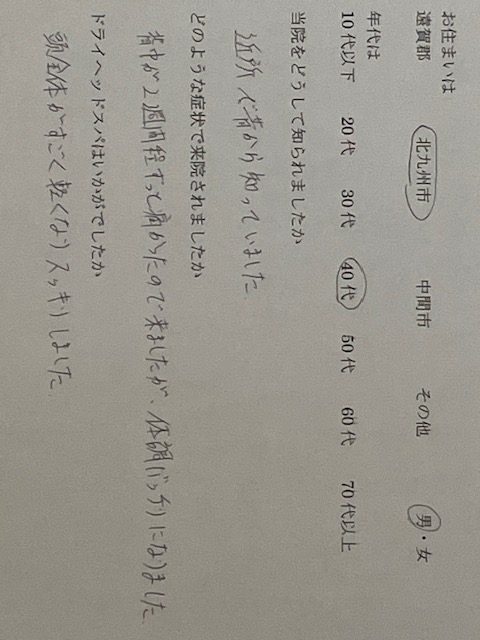 お住まいは
遠賀郡 北九州市 中間市 その他 男・女
年代は
10代以下 20代 30代 40代 50代 60代 70代以上
当院をどうして知られましたか
近所で昔から知っていました。
どのような症状で来院されましたか
背中が2週間程ずっと痛かったので来ましたが、体調バッチリになりました。
ドライヘッドスパはいかがでしたか
頭全体がすごく軽くなりスッキリしました。